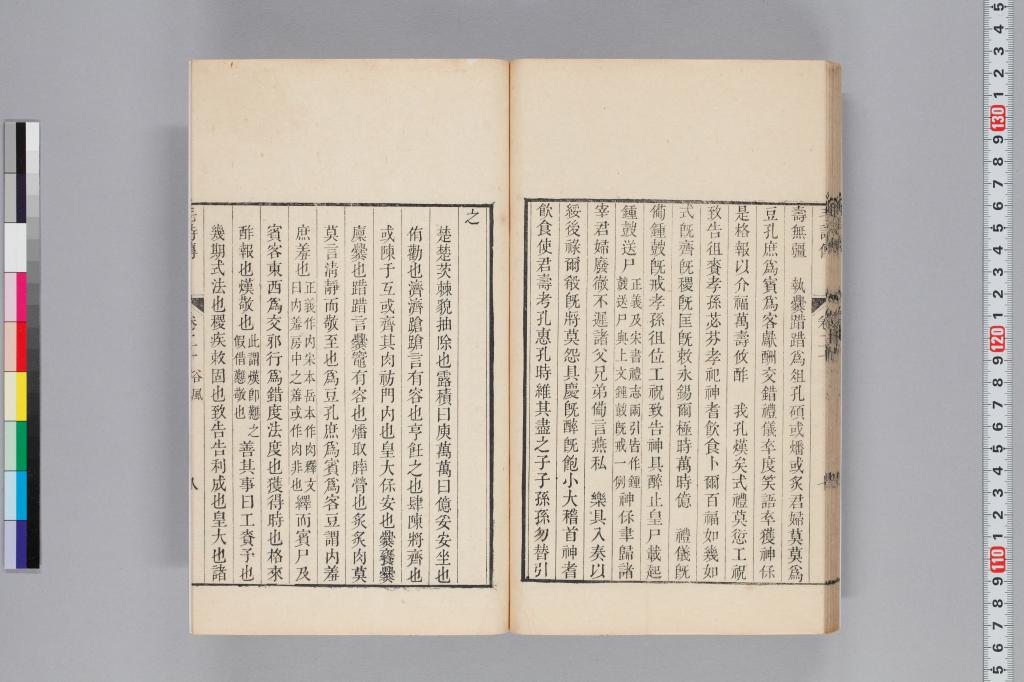 壽無疆　執爨踖踖爲俎孔碩或燔或炙君婦莫莫爲
豆孔庶爲賓爲客獻酬交錯禮儀卒度笑語卒獲神保
是格報以介福萬壽攸酢　我孔熯矣式禮莫愆工祝
致告徂賚孝孫苾芬孝祀神耆飮食卜爾百福如幾如
式旣齊旣稷旣匡旣敕永錫爾極時萬時億　禮儀旣
葡鍾鼓旣戒孝孫徂位工祝致告神具醉止皇尸載起
鍾鼓送尸正義及宋書禮志兩引皆作鍾鼓送尸與上文鍾鼓旣戒一例神保聿歸諸
宰君婦廢徹不遲諸父兄弟葡言燕私　樂具入奏以
綏後祿爾殽旣將莫怨具慶旣醉旣飽小大稽首神耆
飮食使君壽考孔惠孔時維其盡之子子孫孫勿替引
之
楚楚茨棘貌抽除也露積曰庾萬萬曰億妥安坐也
侑勸也濟濟蹌蹌言有容也亨飪之也肆陳將齊也
或陳于互或齊其肉祊門内也皇大保安也爨饔爨
廩爨也踖踖言爨竈有容也燔取膟膋也炙炙肉莫
莫言淸靜而敬至也爲豆孔庶爲賓爲客豆謂内羞
庶羞也正義作内宋本岳本作肉釋文曰内羞房中之羞或作肉非也繹而賓尸及
賓客東西爲交邪行爲錯度法度也獲得時也格來
酢報也熯敬也此謂熯卽戁之假借戁敬也善其事曰工賚予也
幾期式法也稷疾敕固也致告告利成也皇大也諸
毛詩傳
卷二十
谷風
八